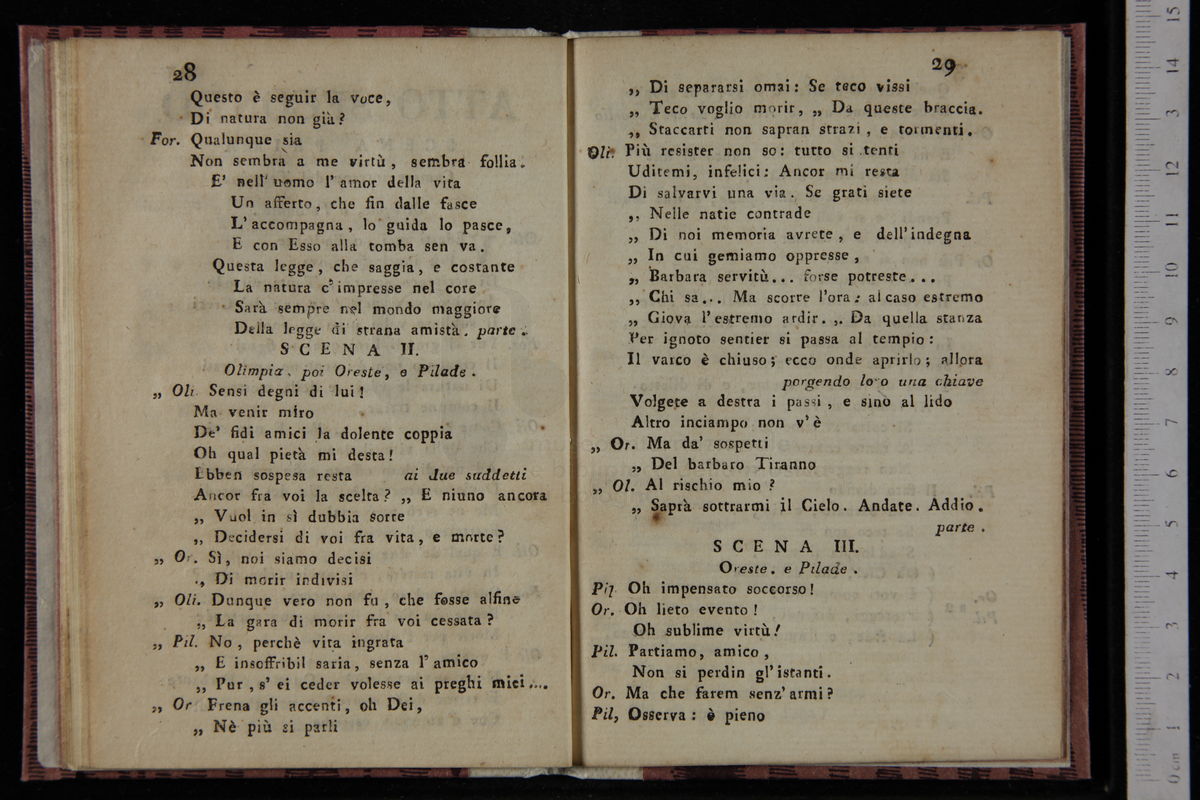 28
Questo è seguir la voce,
Di natura non già?
For. Qualunque sia
Non sembra a me virtù, sembra follia.
E' nell' uomo l' amor della vita
Un afferto, che fin dalle fasce
L' accompagna, lo guida lo pasce,
E con Esso alla tomba sen va.
Questa legge, che saggia, e costante
La natura c' impresse nel core
Sarà sempre nel mondo maggiore
Della legge di strana amistà. parte.
SCENA II.
Olimpia, poi Oreste, e Pilade.
„ Oli. Sensi degni di lui!
Ma venir miro
De' fidi amici la dolente coppia
Oh qual pietà mi desta!
Ebben sospesa resta ai due suddetti
Ancor fra voi la scelta? „ E niuno ancora
„ Vuol in sì dubbia sorte
„ Decidersi di voi fra vita, e morte?
„ Or. Sì, noi siamo decisi
„ Di morir indivisi
„ Oli. Dunque vero non fu, che fosse alfine
„ La gara di morir fra voi cessata?
„ Pil. No, perchè vita ingrata
„ E insoffribil saria, senza l' amico
„ Pur, s' ei ceder volesse ai preghi miei....
„ Or Frena gli accenti, oh Dei,
„ Nè più si parli
29
„ Di separarsi omai: Se teco vissi
„ Teco voglio morir, „ Da queste braccia.
„ Staccarti non sapran strazi, e tormenti.
Oli. Più resister non so: tutto si tenti
Uditemi, infelici: Ancor mi resta
Di salvarvi una via. Se grati siete
„ Nelle natie contrade
„ Di noi memoria avrete, e dell' indegna
„ In cui gemiamo oppresse,
„ Barbara servitù... forse potreste...
„ Chi sa... Ma scorre l'ora: al caso estremo
„ Giova l' estremo ardir. „ Da quella stanza
Per ignoto sentier si passa al tempio:
Il varco è chiuso; ecco onde aprirlo; allora
porgendo loro una chiave
Volgete a destra i passi, e sino al lido
Altro inciampo non v' è
„ Or. Ma da' sospetti
„ Del barbaro Tiranno
„ Ol. Al rischio mio?
„ Saprà sottrarmi il Cielo. Andate. Addio.
parte.
SCENA III.
Oreste. e Pilade.
Pil Oh impensato soccorso!
Or. Oh lieto evento!
Oh sublime virtù!
Pil. Partiamo, amico,
Non si perdin gl' istanti.
Or. Ma che farem senz' armi?
Pil, Osserva: è pieno
0 cm 1 2 3 4 5 6 7 8 9 10 11 12 13 14 15